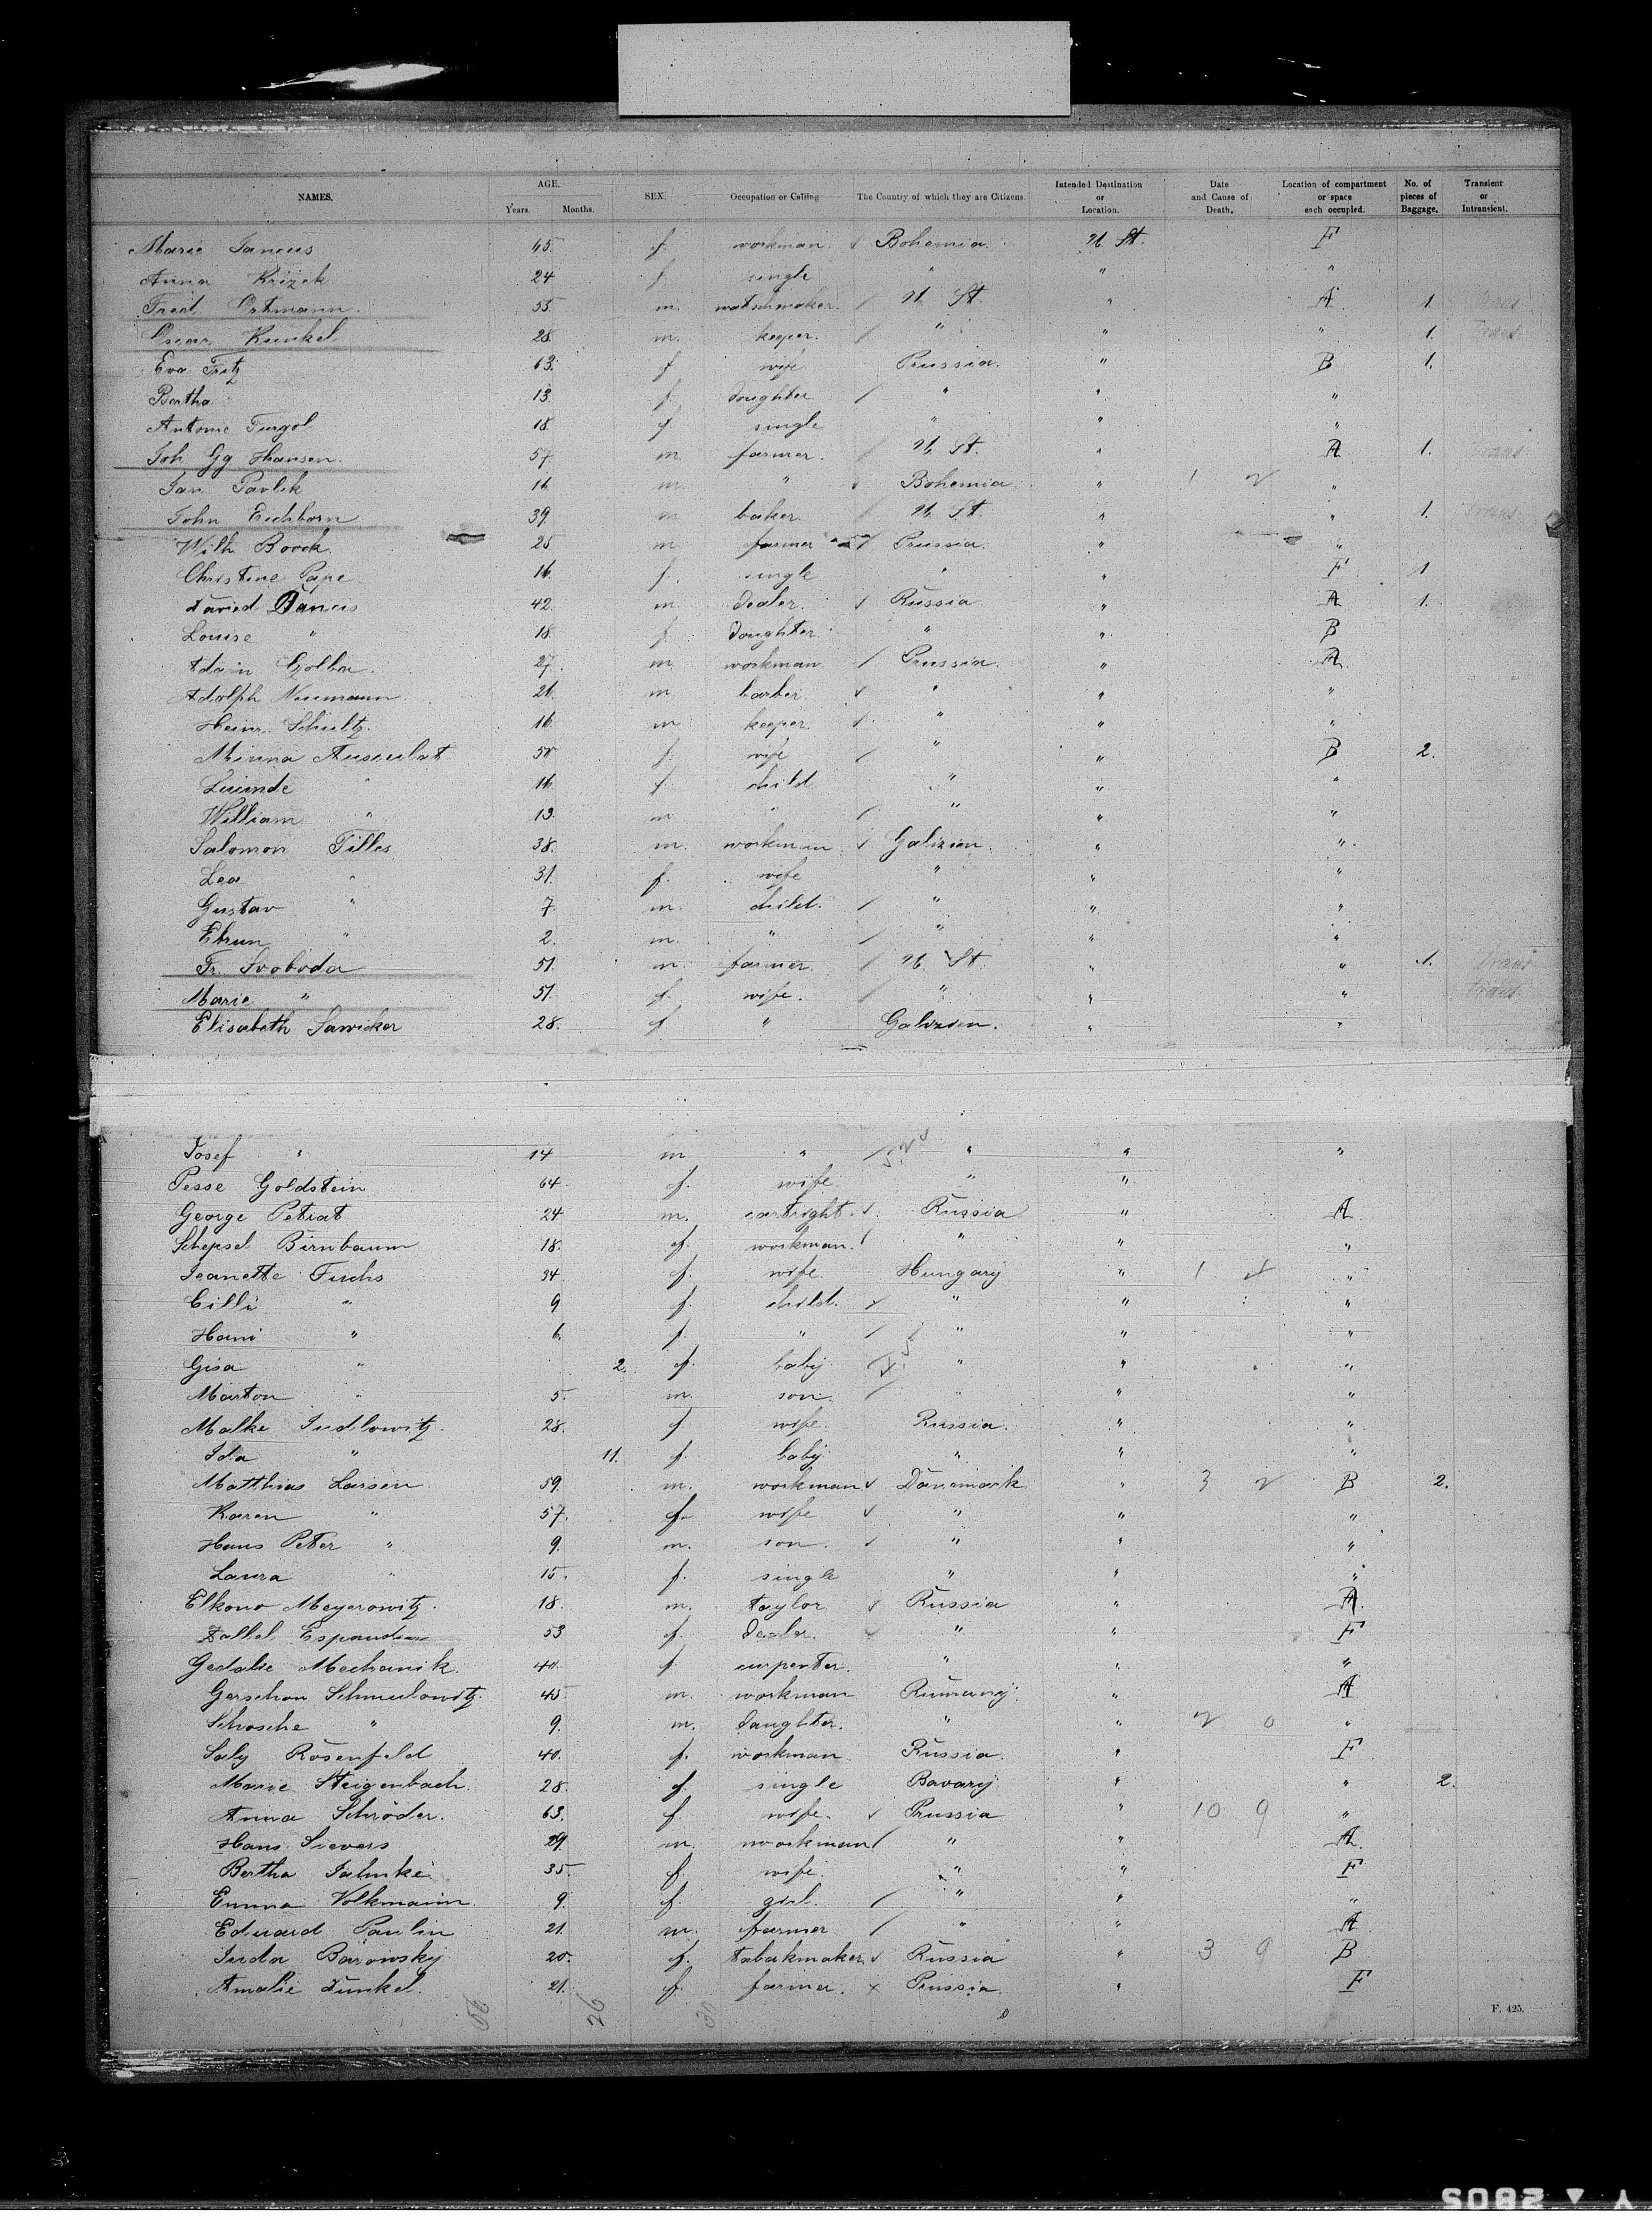 NAMES. AGE. Years. Months. SEX. Occupation or Calling The Country of which they are Citizens Intended Destination or Location. Date and Cause of Death. Location of compartment or space each occupied. No. of pieces of Baggage. Transient or Intransient.
Marie Jancus 45. f. workman. Bohemia. U. St. F
Anna Krizek 24 f single " " "
Fred. Ortmann. 55 m. watschmaker. U. St. " A 1. trans
Oscar Kunkel 28 m. keeper. " " " 1. trans
Eva Fritz 43. f wife Prussia. " B 1.
Bertha 13. f. doughter " " "
Antonie Turgol 18. f. single " " "
Joh. Gg Hansen. 57 m. farmer. U. St. " A 1. trans
Jan Pavlik 16 m. " Bohemia " 1 2 "
John Eichborn 39. m baker. U. St. " " 1. trans
Wilh Boock. 25 m farmer Prussia. " "
Christine Pape 16. f. single " " F. 1
David Dancis 42. m. dealer. Russia " A 1.
Louise " 18. f. doughter " " B
Adam Golba. 27. m. workman Prussia. " A
Adolph Neumann 21. m barber. " " "
Heinr. Schultz. 16. m keeper. " " "
Minna Ausculat 50 f. wife " " B 2.
" 16. f. child " " "
William " 13. m " " " "
Salomon Tilles 38. m. workman Galizien. " "
Lea " 31. f. wife " " "
Gustav " 7. m. child. " " "
" 2. m. " " " "
Fr. Svoboda 51. m. farmer. U. St. " " 1. trans
Marie " 51. f. wife. " " " trans
Elisabeth Sawicker 28. f " Galizien. " "
Josef " 14 m " " " "
Pesse Goldstein 64. f. wife. " "
George Petrat 24 m. Russia " A
Schepsel Birnbaum 18. f. workman. " " "
Jeanette Fuchs 34. f. wife Hungary " 1 4 "
Cilli " 9 f. child. " " "
Hani " 6. f. " " " "
Gisa " 2. f. baby " " "
Marton " 5. m. son. " " "
Malke Judlowitz. 28. f. wife. Russia. " "
Ida " 11. f. baby " " "
Matthias Larsen 59. m. workman Danemark " 3 2 B 2.
Karen " 57. f. wife " " "
Hans Peter " 9. m. son. " " "
Laura " 15. f. single " " "
Elkono Meyerowitz. 18. m. taylor Russia " A.
53 f. dealer. " " F
Gedalie Mechanik. 40. f. carpenter. " " "
Gerschon Schmulowitz. 45 m. workman Rumany. " A
Schosche " 9. m. daughter. " " 2 0 "
Saly Rosenfeld 40. f. workman Russia. " F.
Marie Steigenbach. 28. f. single Bavary " " 2.
Anna Schröder. 63. f wife. Prussia " 10 9 "
Hans Sievers 29. m. workman " " A.
Bertha Jahnke 35. f. wife. " " F
Emma Volkmann. 9. f. girl. " " "
Eduard Paulin 21. m. farmer " " A
Juda Barowsky 20. f. tabakmaker. Russia " 3 9 B
Amalie Dunkel. 21. f. farmer. Prussia. " F
56 26 30
F. 425.
5082